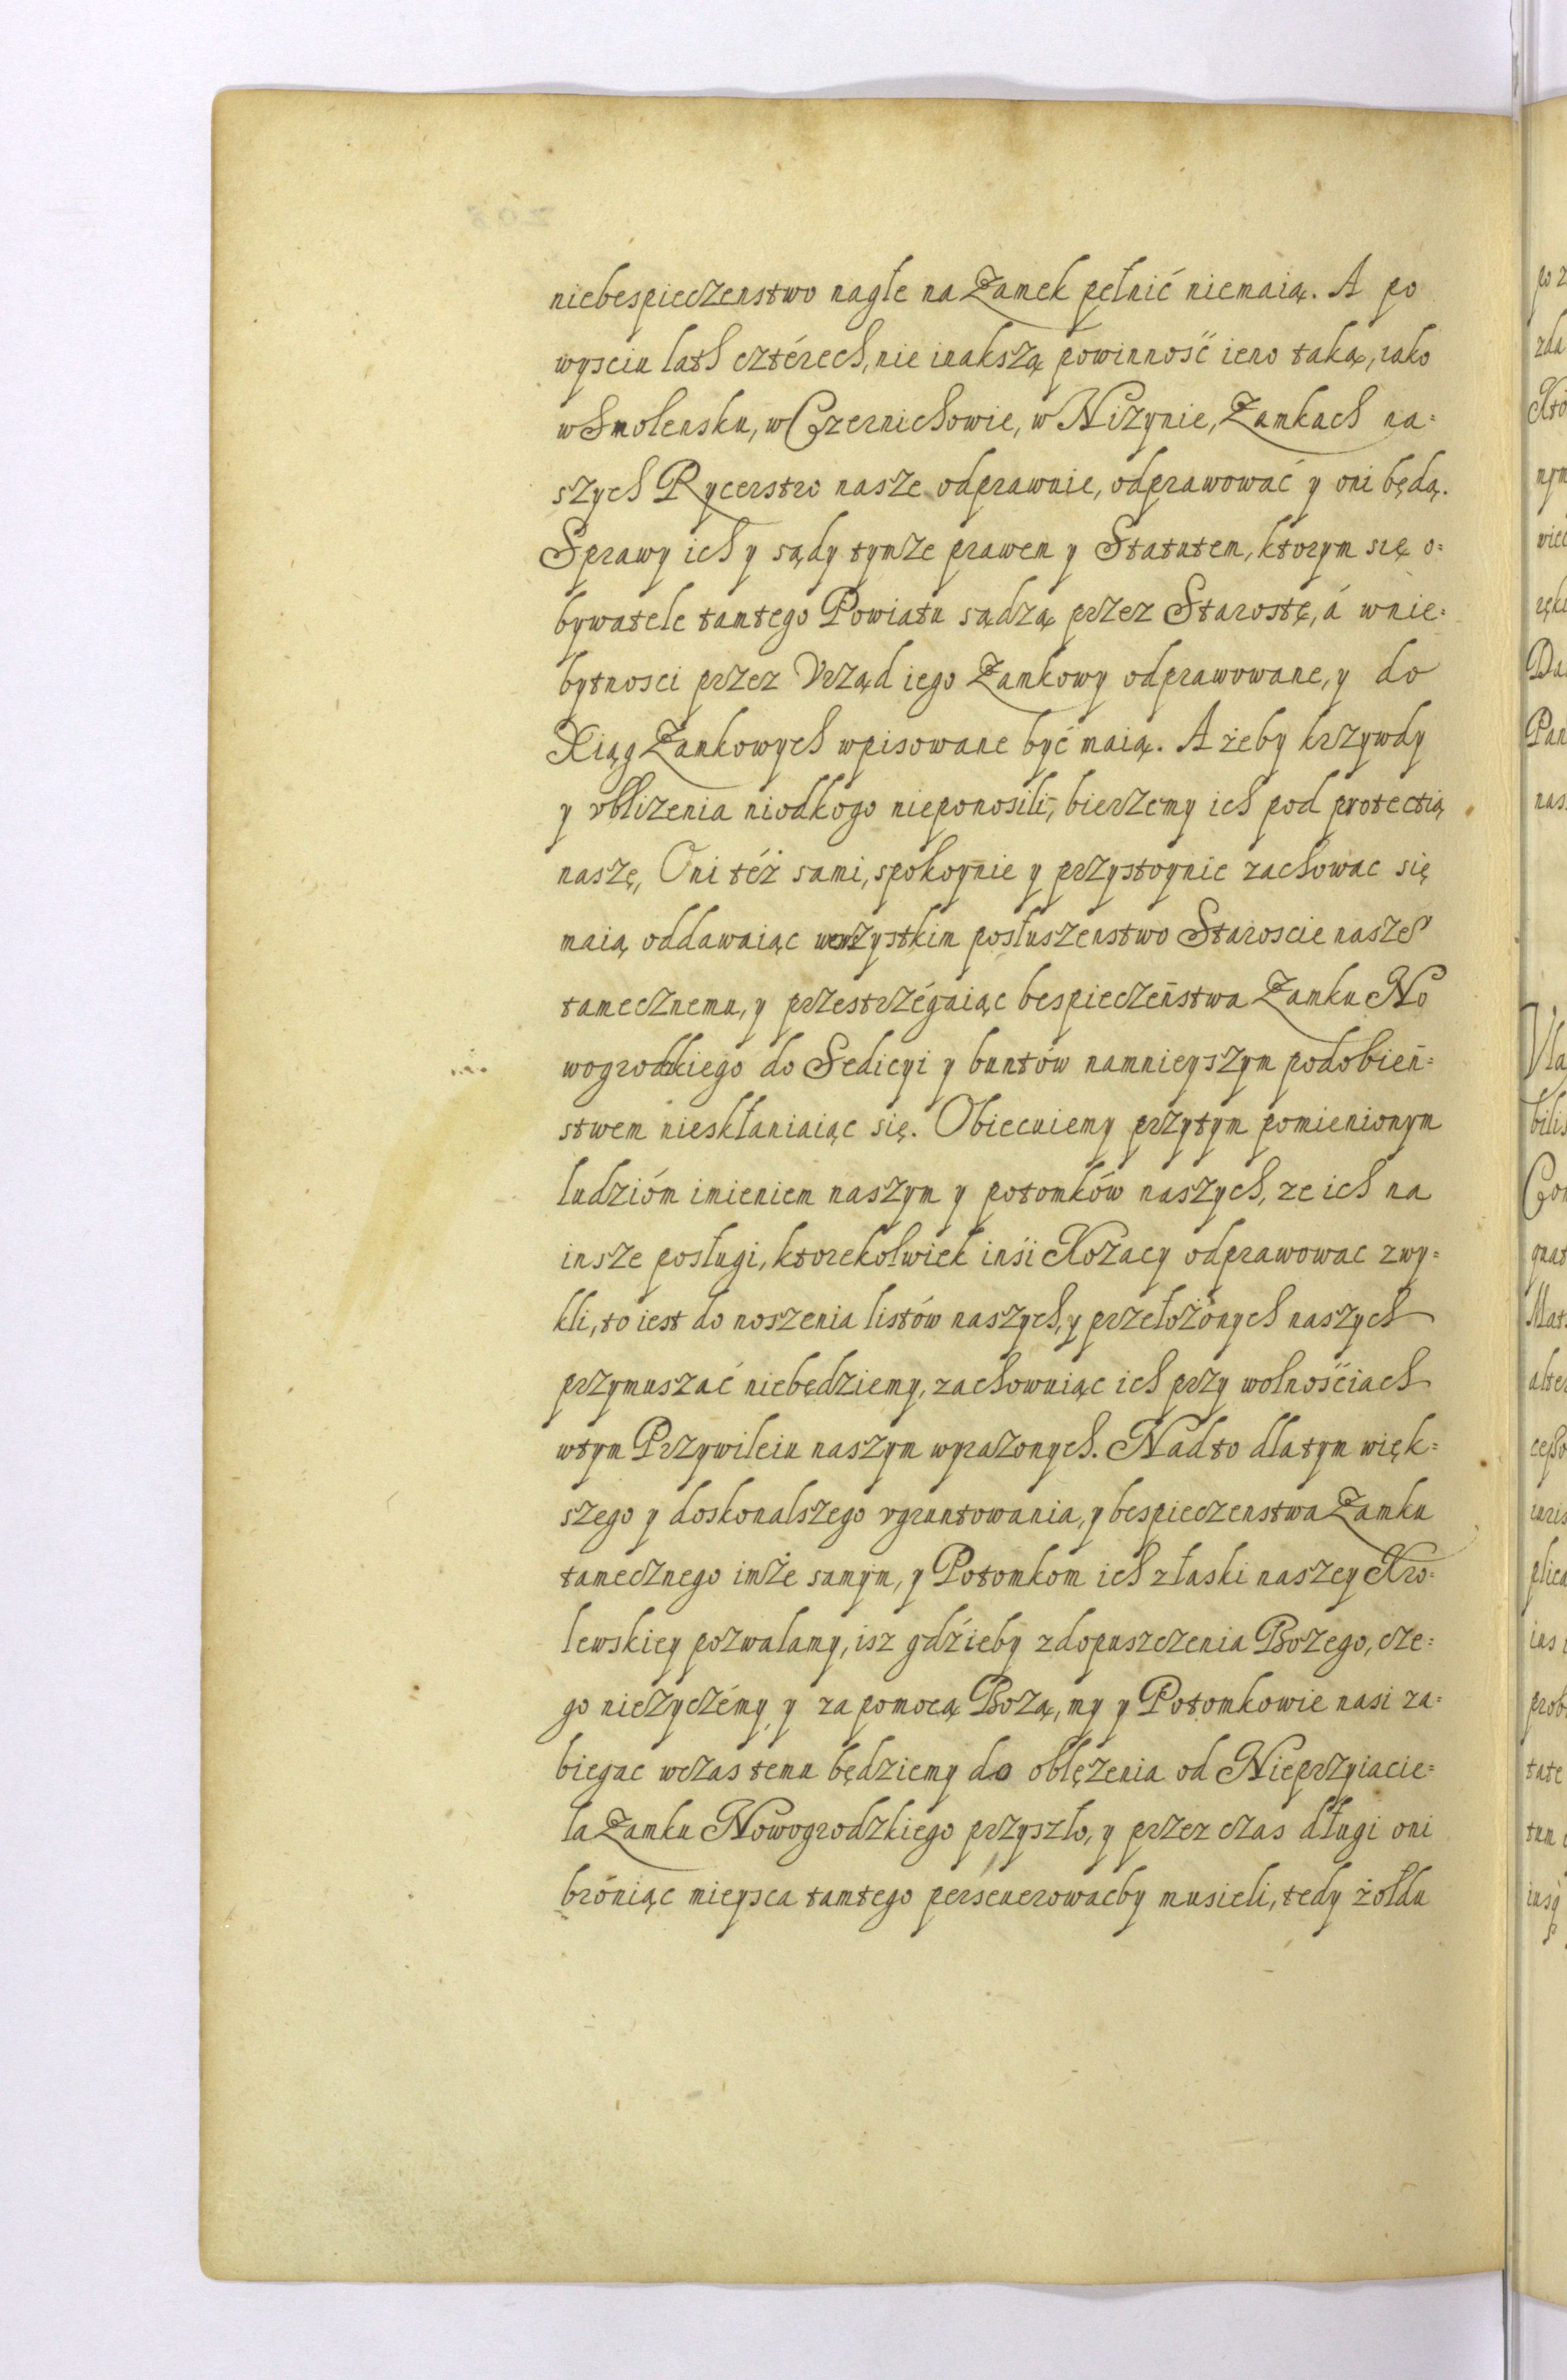 niebespieczenstwo nagłe na Zamek pełnić niemaią. A po
wysciu lath cztérech, nie inakszą powinność ieno taką, iako
w Smolensku, w Czernichowie, w Nizynie, Zamkach na=
szych Rycerstwo nasze odprawuie, odprawować y oni będą.
Sprawy ich y sądy tymże prawem y Statutem, ktorym się o=
bywatele tamtego Powiatu sądzą przez Starostę, á wnie=
bytnosci przez Vrząd iego Zamkowy odprawowane, y do
Xiąg Zamkowych wpisowane być maią. A żeby krzywdy
y vbliżenia niodkogo nieponosili, bierzemy ich pod protectią
naszę, Oni téż sami, spokoynie y przystoynie zachowac się
maią oddawaiąc wewszystkim posłuszenstwo Staroscie nasze
tamecznemu, y przestrzégaiąc bespieczeństwa Zamku No
wogrodzkiego do Sedicyi y buntów namnieyszym podobień=
stwem nieskłaniaiąc się. Obiecuiemy przytym pomienionym
ludzióm imieniem naszym y potomków naszych, ze ich na
insze posługi, ktorekolwiek insi Kozacy odprawowac zwy=
kli, to iest do noszenia listów naszych, y przełożonych naszych
przymuszać niebędziemy, zachowuiąc ich przy wolnościach
wtym Przywileiu naszym wyrazonych. Nad to dla tym więk=
szego y doskonalszego vgruntowania, y bespieczenstwa Zamku
tamecznego imże samym, y Potomkom ich złaski naszey Kro=
lewskiey pozwalamy, isz gdźieby zdopuszczenia Bozego, cze=
go nieżyczémy y za pomocą Bozą, my y Potomkowie nasi za=
biegac wczas temu będziemy do oblężenia od Nieprzyiacie=
la Zamku Nowogrodzkiego przyszło, y przez czas długi oni
broniąc mieysca tamtego perseuerowacby musieli, tedy żołdu